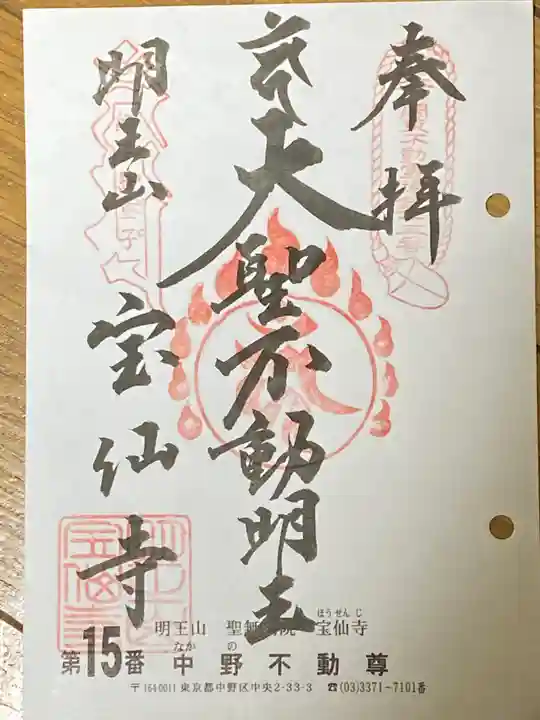 奉拝
大聖不動明王
明王山
宝仙寺
ほうせんじ
明王山 聖無動院 宝仙寺
なか の
第15番 中野不動尊
〒164-0011 東京都中野区中央2-33-3 ☎(03)3371-7101番